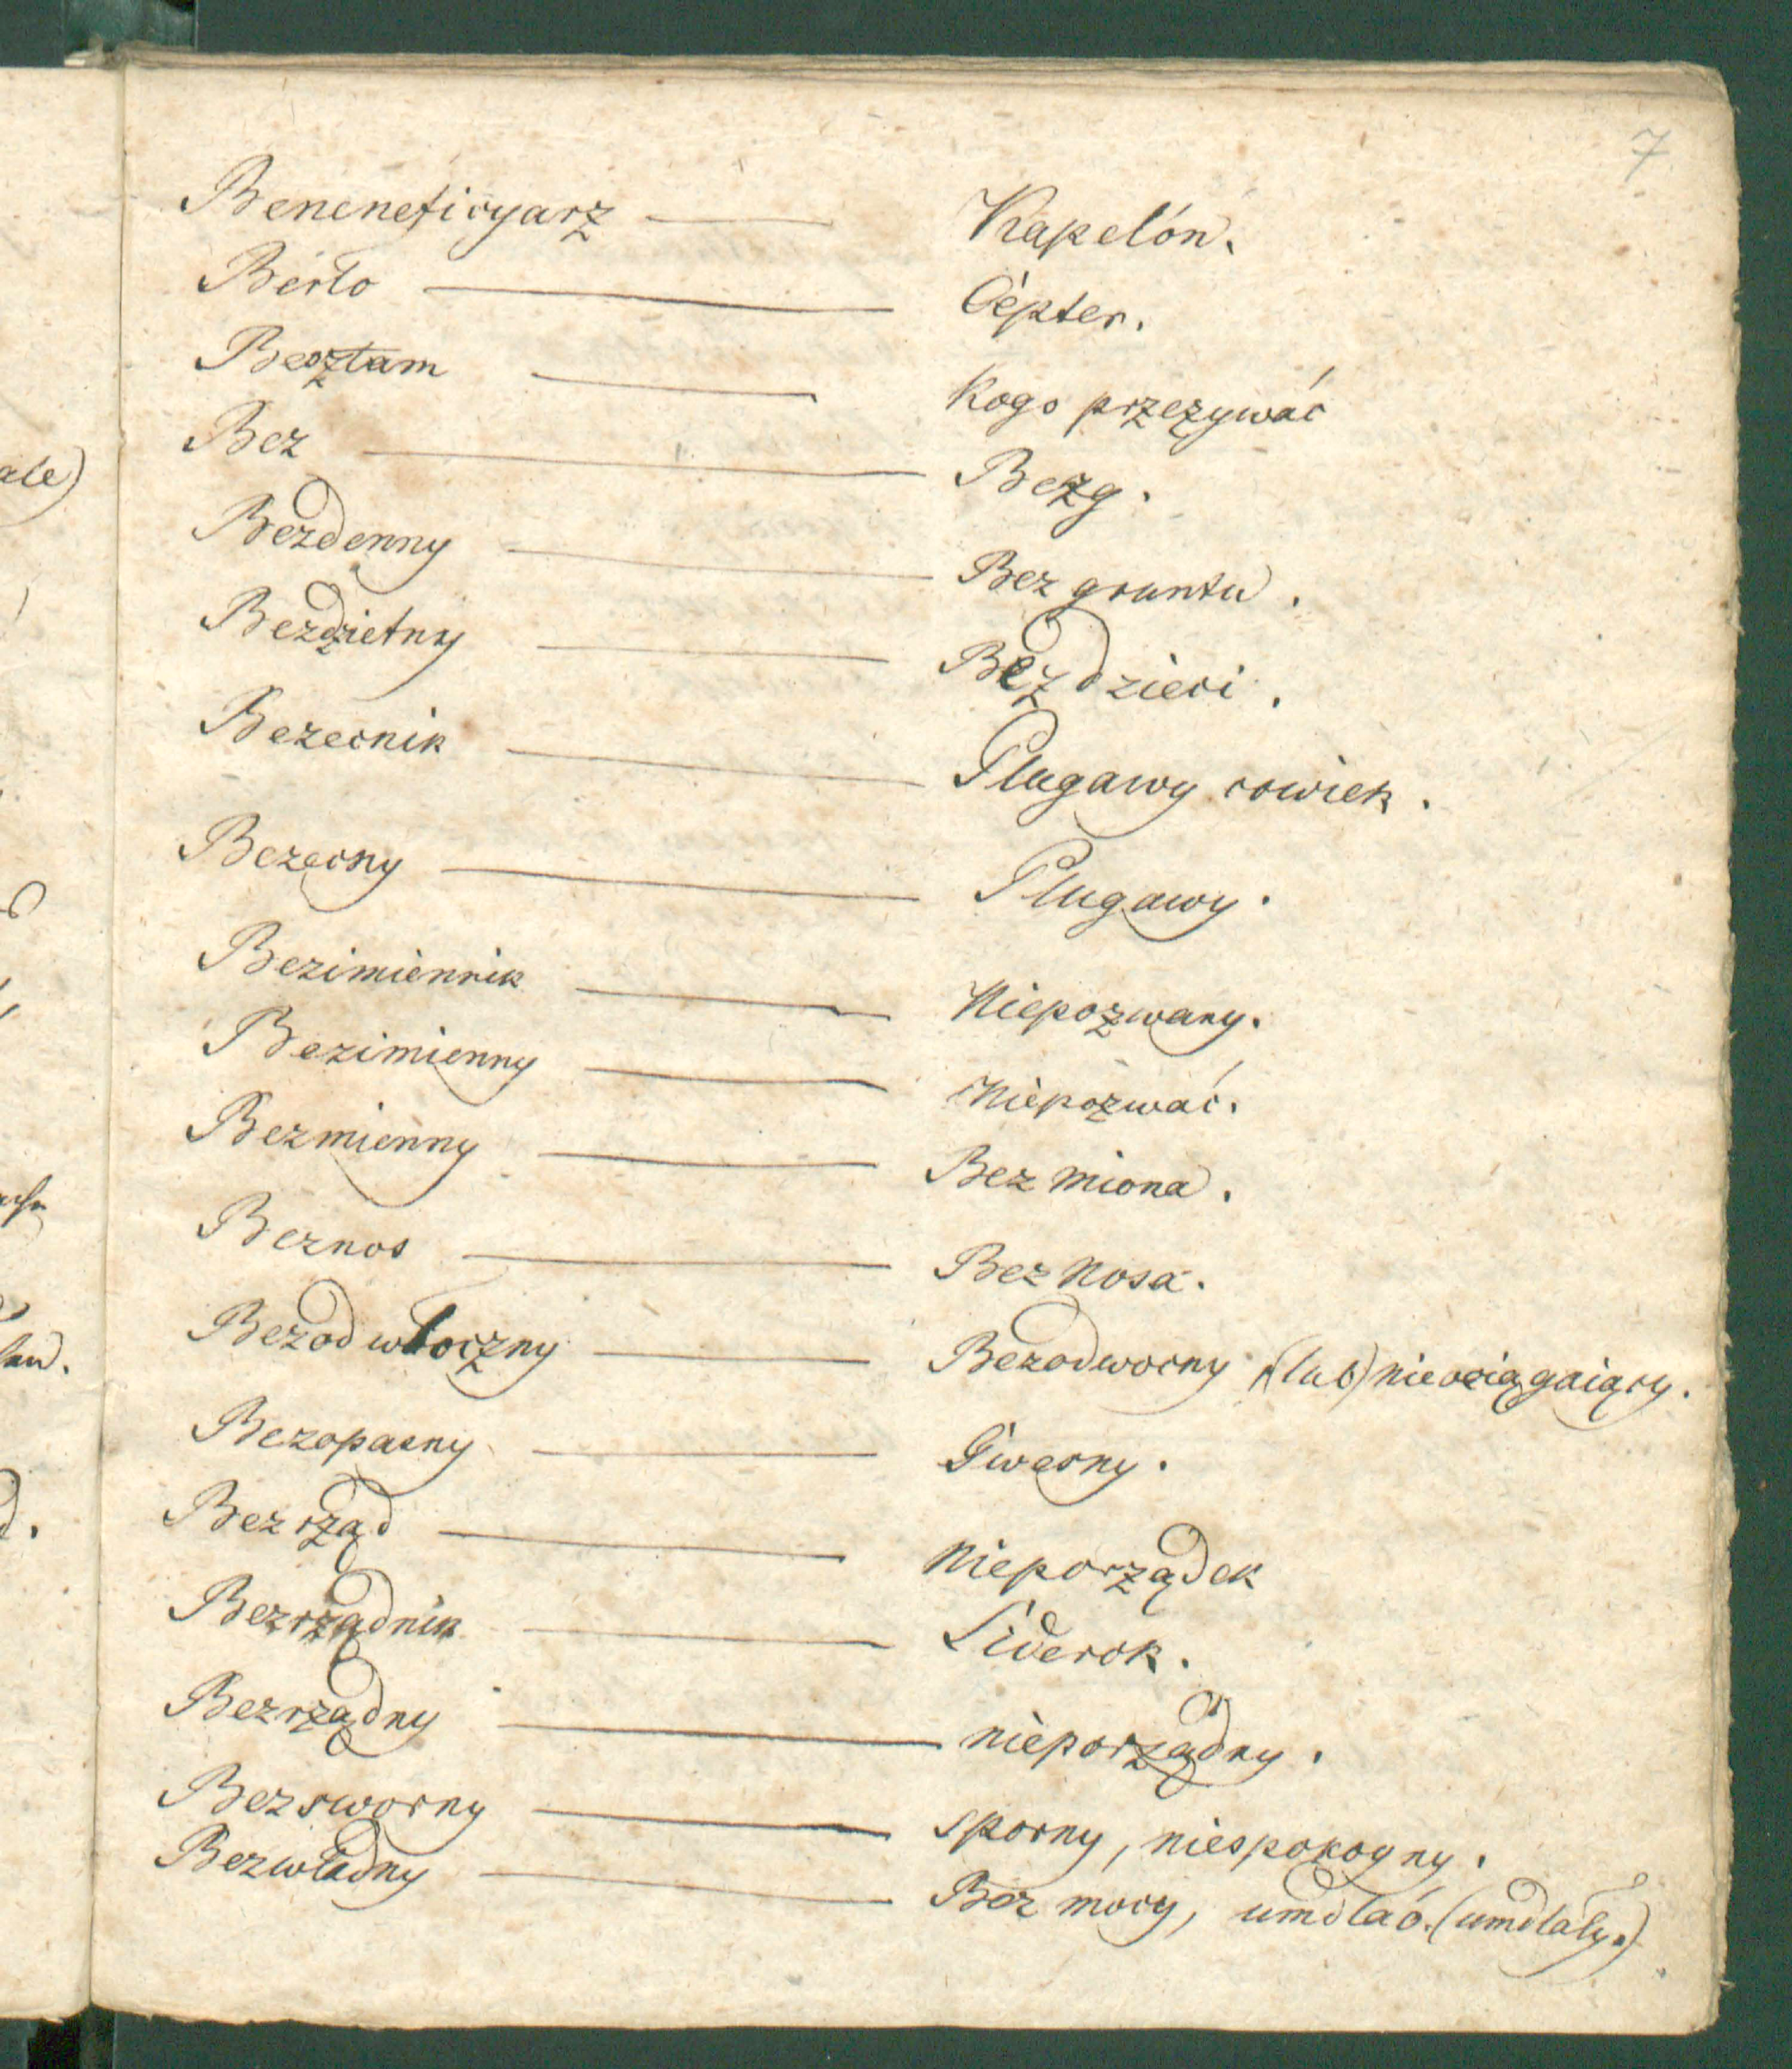 7
Beneneficyarz — Kapelón.
Berło — Cèpter.
Besztam — Kogo przezywać
Bez — Bezg.
Bezdenny — Bez gruntu.
Bezdzietny — Bez dzieci.
Bezecnik — Plugawy cowiek.
Bezecny — Plugawy.
Bezimiennik — Niepozwany.
Bezimienny — Niepozwać.
Bezmienny — Bez miona.
Beznos — Bez Nosa.
Bezodwłoczny — Bezodwocny (lub) nieociągaiący.
Bezopasny —
Bezrząd — Nieporządek
Bezrządnik — Liderok.
Bezrządny — nieporządny.
Bezsworny — sporny, niespokoyny.
Bezwładny — Bez mocy, umdlaó. (umdlały.)
ale)